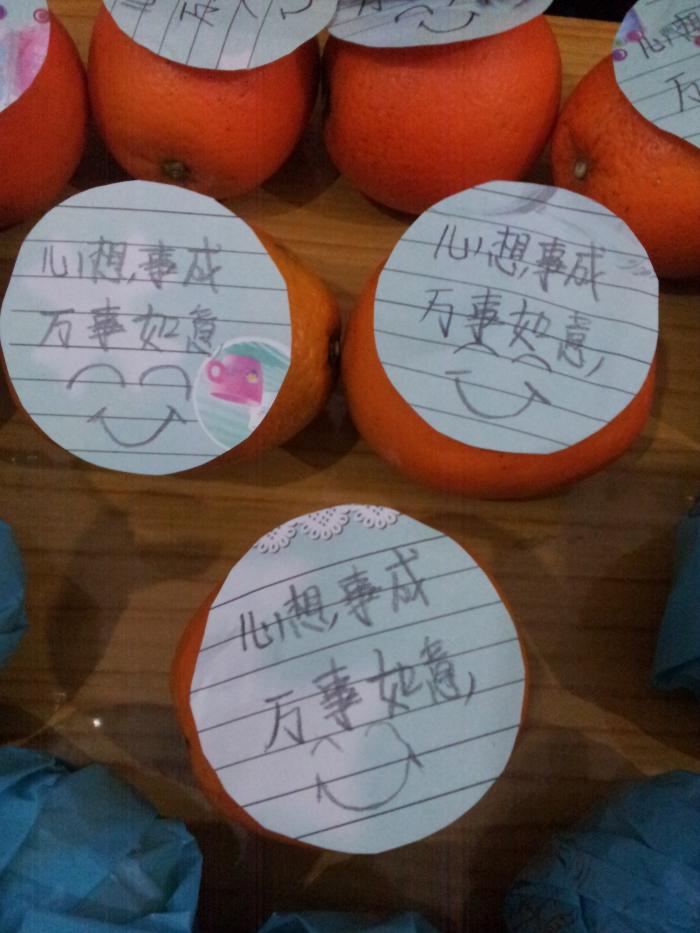 心想事成
万事如意
心想事成
万事如意,
心想,事成
万事如意,